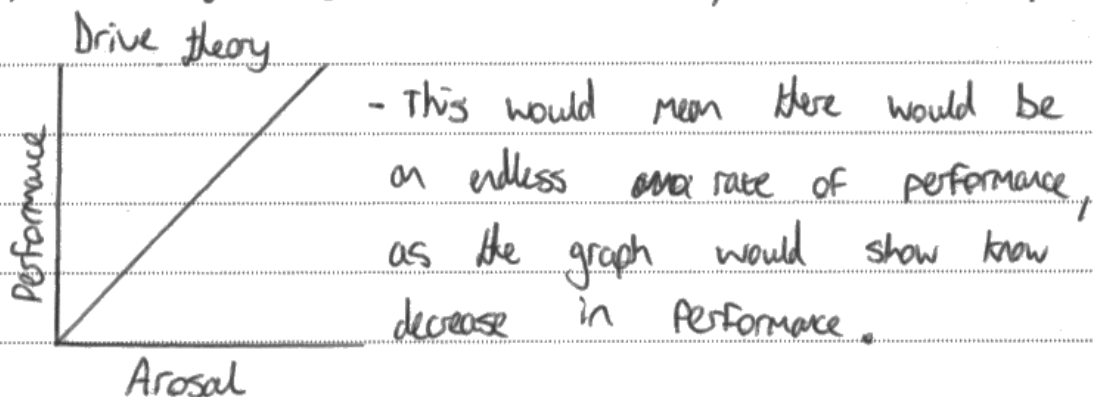 Drive theory
Performance
- This would mean there would be
an endless rate of performance,
as the graph would show know
decrease in performance.
Arosal